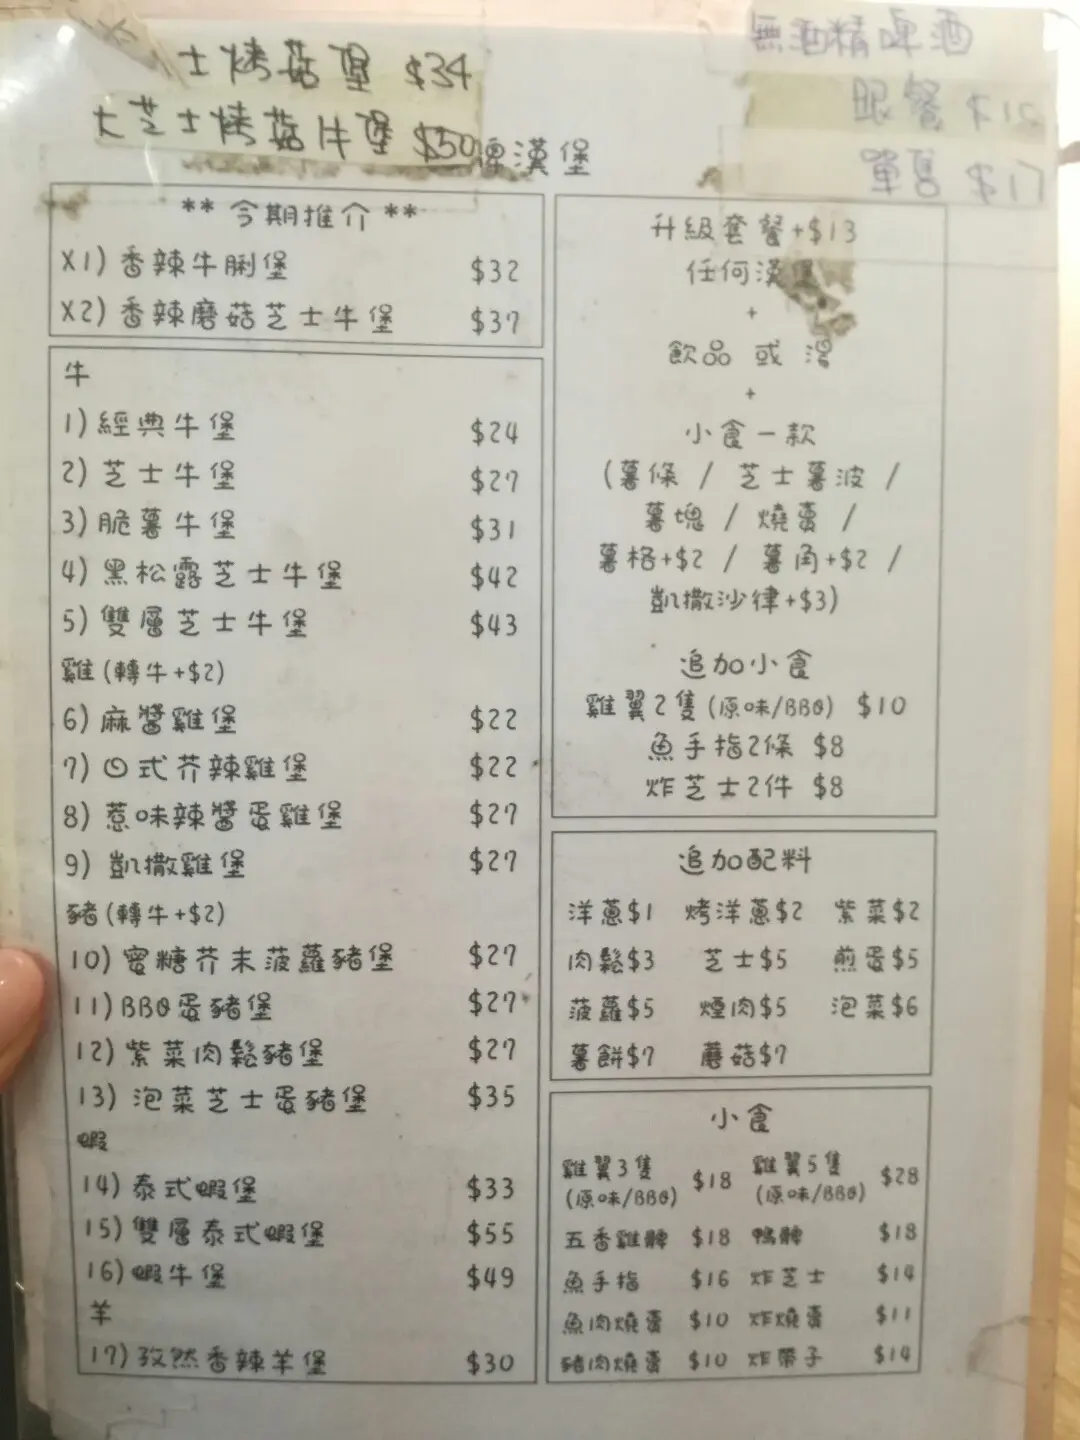 士烤菇堡 $34
大芝士烤菇牛堡 $50
漢堡
無酒精啤酒
跟餐 $12
單售 $17
** 今期推介 **
X1) 香辣牛脷堡 $32
X2) 香辣磨菇芝士牛堡 $37
牛
1) 經典牛堡 $24
2) 芝士牛堡 $27
3) 脆薯牛堡 $31
4) 黑松露芝士牛堡 $42
5) 雙層芝士牛堡 $43
雞 (轉牛+$2)
6) 麻醬雞堡 $22
7) 日式芥辣雞堡 $22
8) 惹味辣醬蛋雞堡 $27
9) 凱撒雞堡 $27
豬 (轉牛+$2)
10) 蜜糖芥末菠蘿豬堡 $27
11) BBQ蛋豬堡 $27
12) 紫菜肉鬆豬堡 $27
13) 泡菜芝士蛋豬堡 $35
蝦
14) 泰式蝦堡 $33
15) 雙層泰式蝦堡 $55
16) 蝦牛堡 $49
羊
17) 孜然香辣羊堡 $30
升級套餐+$13
任何漢堡
+
飲品 或 湯
+
小食一款
(薯條 / 芝士薯波 /
薯塊 / 燒賣 /
薯格+$2 / 薯角+$2 /
凱撒沙律+$3)
追加小食
雞翼2隻 (原味/BBQ) $10
魚手指2條 $8
炸芝士2件 $8
追加配料
洋蔥$1 烤洋蔥$2 紫菜$2
肉鬆$3 芝士$5 煎蛋$5
菠蘿$5 煙肉$5 泡菜$6
薯餅$7 蘑菇$7
小食
雞翼3隻 (原味/BBQ) $18 雞翼5隻 (原味/BBQ) $28
五香雞髀 $18 鴨髀 $18
魚手指 $16 炸芝士 $14
魚肉燒賣 $10 炸燒賣 $11
豬肉燒賣 $10 炸帶子 $14